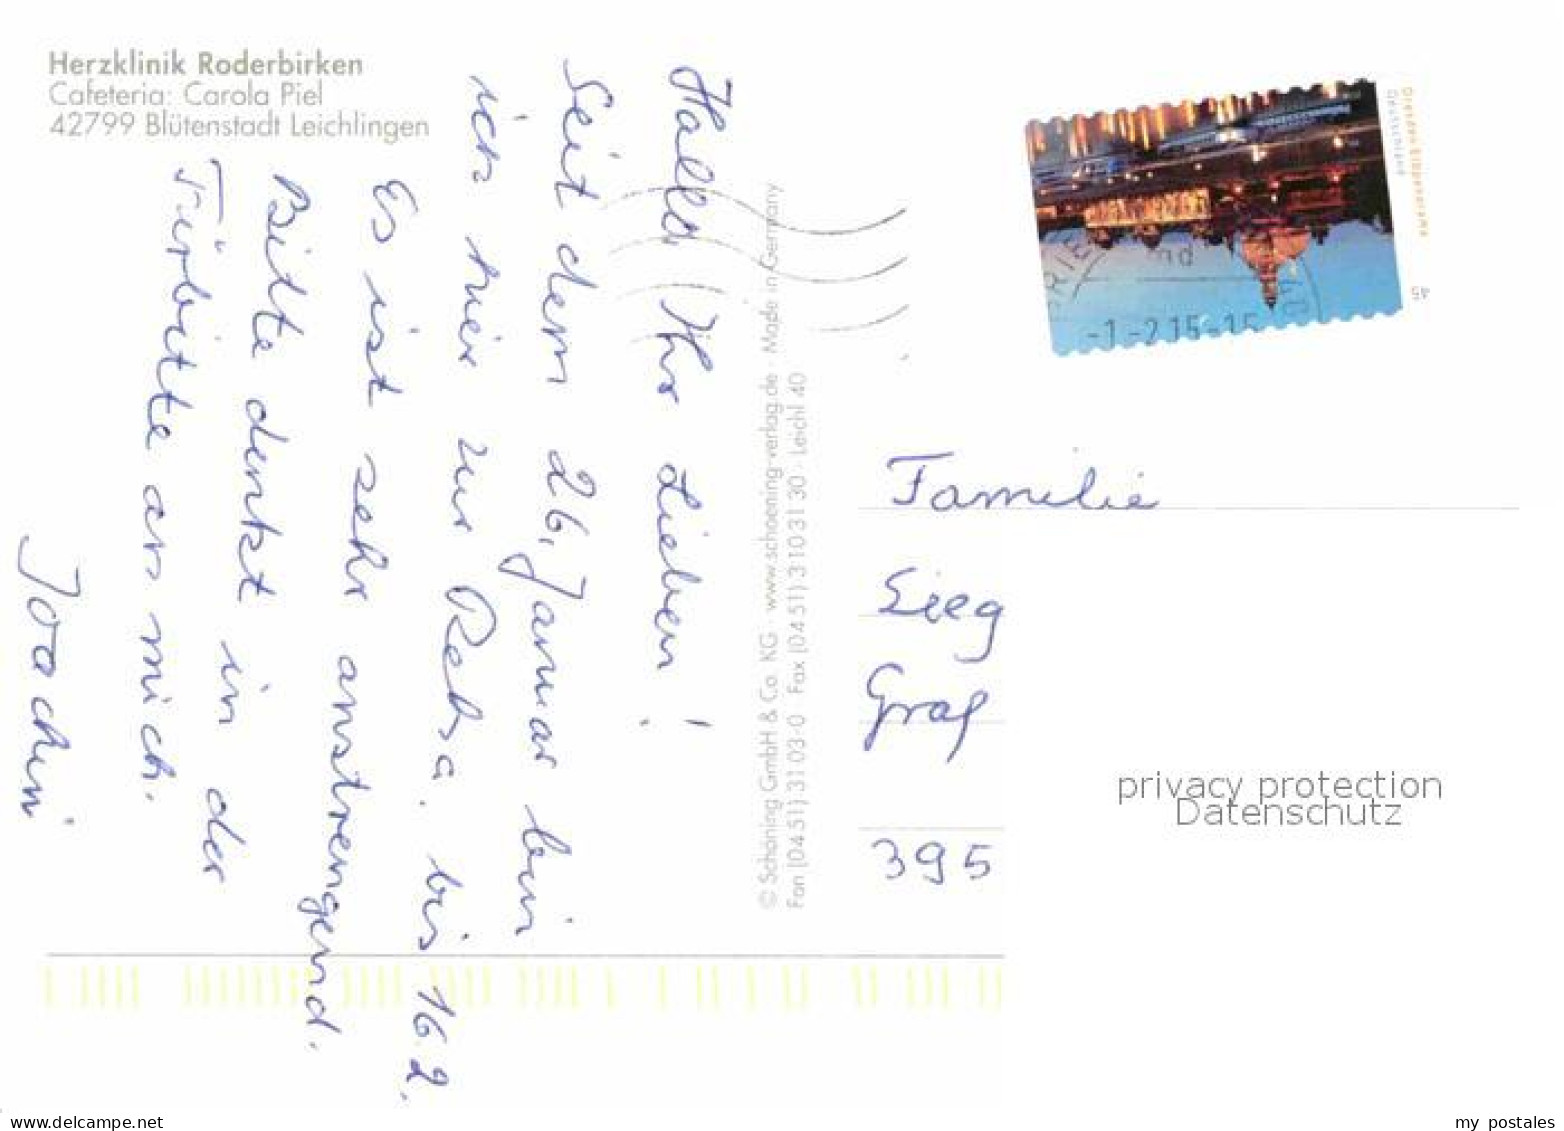 Herzklinik Roderbirken
Cafeteria: Carola Piel
42799 Blütenstadt Leichlingen
Hallo, Ihr Lieben!
Seit dem 26. Januar bin
ich hier zur Reha. bis 16.2.
Es ist sehr anstrengend.
Bitte denkt in der
Fürbitte an mich.
Joachim
© Schöning GmbH & Co. KG · www.schoening-verlag.de · Made in Germany
Fon (04 51) 31 03-0 · Fax (04 51) 3 10 31 30 · Leichl 40
Dresden Elbpanorama
Deutschland
45
BRIE
-1.-2.15-15
Familie
Sieg
Graf
395
privacy protection
Datenschutz
www.delcampe.net
my_postales